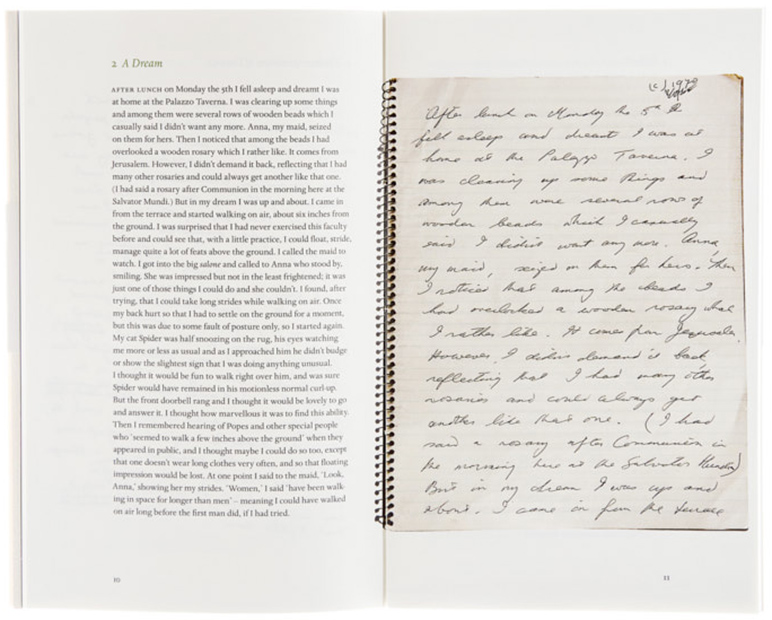 2 A Dream
AFTER LUNCH on Monday the 5th I fell asleep and dreamt I was
at home at the Palazzo Taverna. I was clearing up some things
and among them were several rows of wooden beads which I
casually said I didn't want any more. Anna, my maid, seized
on them for hers. Then I noticed that among the beads I had
overlooked a wooden rosary which I rather like. It comes from
Jerusalem. However, I didn't demand it back, reflecting that I had
many other rosaries and could always get another like that one.
(I had said a rosary after Communion in the morning here at the
Salvator Mundi.) But in my dream I was up and about. I came in
from the terrace and started walking on air, about six inches from
the ground. I was surprised that I had never exercised this faculty
before and could see that, with a little practice, I could float, stride,
manage quite a lot of feats above the ground. I called the maid to
watch. I got into the big salone and called to Anna who stood by,
smiling. She was impressed but not in the least frightened; it was
just one of those things I could do and she couldn't. I found, after
trying, that I could take long strides while walking on air. Once
my back hurt so that I had to settle on the ground for a moment,
but this was due to some fault of posture only, so I started again.
My cat Spider was half snoozing on the rug, his eyes watching
me more or less as usual and as I approached him he didn't budge
or show the slightest sign that I was doing anything unusual.
I thought it would be fun to walk right over him, and was sure
Spider would have remained in his motionless normal curl-up.
But the front doorbell rang and I thought it would be lovely to go
and answer it. I thought how marvellous it was to find this ability.
Then I remembered hearing of Popes and other special people
who 'seemed to walk a few inches above the ground' when they
appeared in public, and I thought maybe I could do so too, except
that one doesn't wear long clothes very often, and so that floating
impression would be lost. At one point I said to the maid, 'Look,
Anna,' showing her my strides. 'Women,' I said 'have been walk-
ing in space for longer than men' – meaning I could have walked
on air long before the first man did, if I had tried.
10
(c) 1970
After lunch on Monday the 5th I
fell asleep and dreamt I was at
home at the Palazzo Taverna. I
was clearing up some things and
among them were several rows of
wooden beads which I casually
said I didn't want any more. Anna,
my maid, seized on them for hers. Then
I noticed that among the beads I
had overlooked a wooden rosary what
I rather like. It comes from Jerusalem.
However, I didn't demand it back,
reflecting that I had many other
rosaries and could always get
another like that one. (I had
said a rosary after Communion in
the morning here at the Salvator Mundi)
But in my dream I was up and
about. I came in from the terrace
11